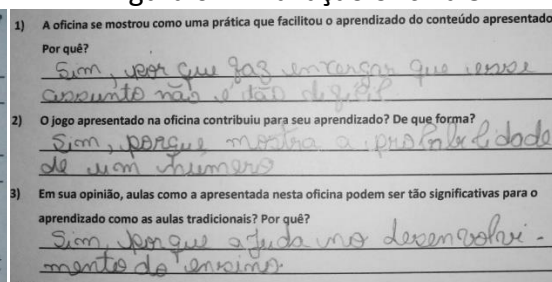 1) A oficina se mostrou como uma prática que facilitou o aprendizado do conteúdo apresentado
Por quê?
Sim, por que faz enxergar que esse
assunto não é tão difícil
2) O jogo apresentado na oficina contribuiu para seu aprendizado? De que forma?
Sim, porque mostra a probabilidade
de um número
3) Em sua opinião, aulas como a apresentada nesta oficina podem ser tão significativas para o
aprendizado como as aulas tradicionais? Por quê?
Sim, porque ajuda no desenvolvi-
mento do ensino.